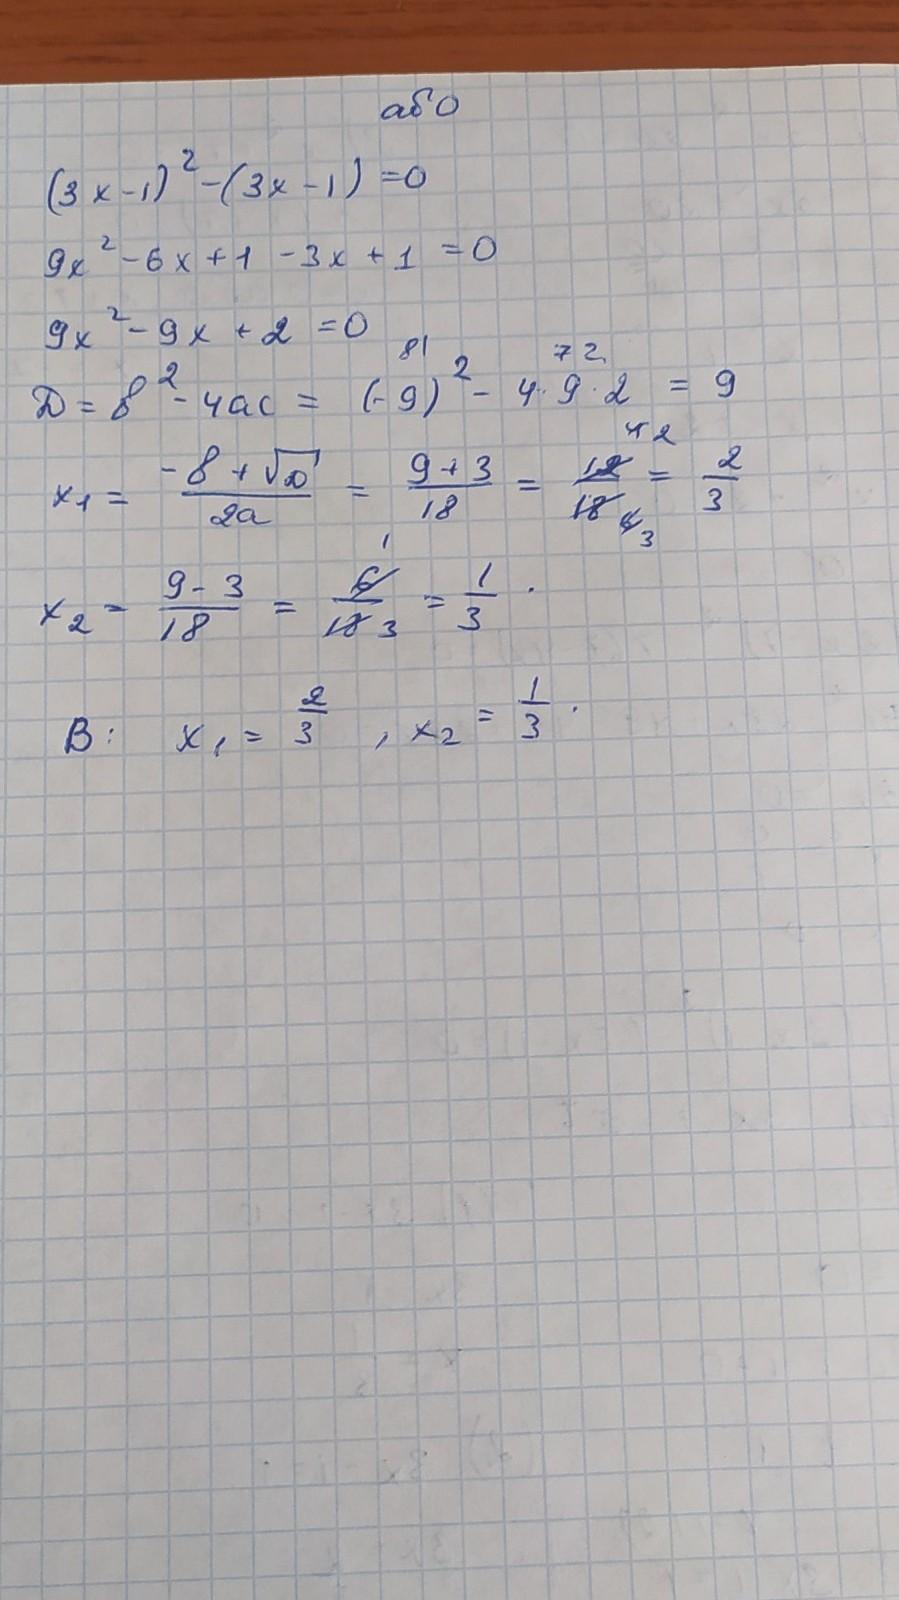 або
(3x-1)² -(3x-1) =0
9x² -6x +1 -3x +1 =0
9x² - 9x + 2 =0
81 72
D = в² -4ac = (-9)² - 4·9·2 = 9
x₁ = (-в + √D)/2a = (9+3)/18 = 12/18 = 2/3
x₂ = (9-3)/18 = 6/18 = 1/3 .
В: x₁ = 2/3 , x₂ = 1/3 .